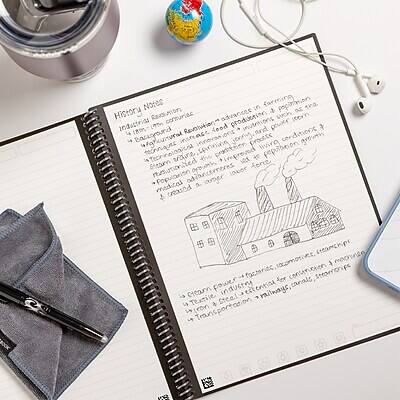 History Notes
Industrial Revolution
↳ 18th-19th centuries
↳ Background
↳ Agricultural Revolution → advances in farming
techniques increase food production & population
↳ Technological innovations → inventions such as the
steam engine, spinning jenny, and power loom
revolutionized the production process
↳ Population growth → improved living conditions &
medical advancements led to population growth
& created a larger labor force
↳ Steam power → factories, locomotives, steamships
↳ Textile industry
↳ Iron & Steel → essential for construction & machinery
↳ Transportation → railways, canals, steamships